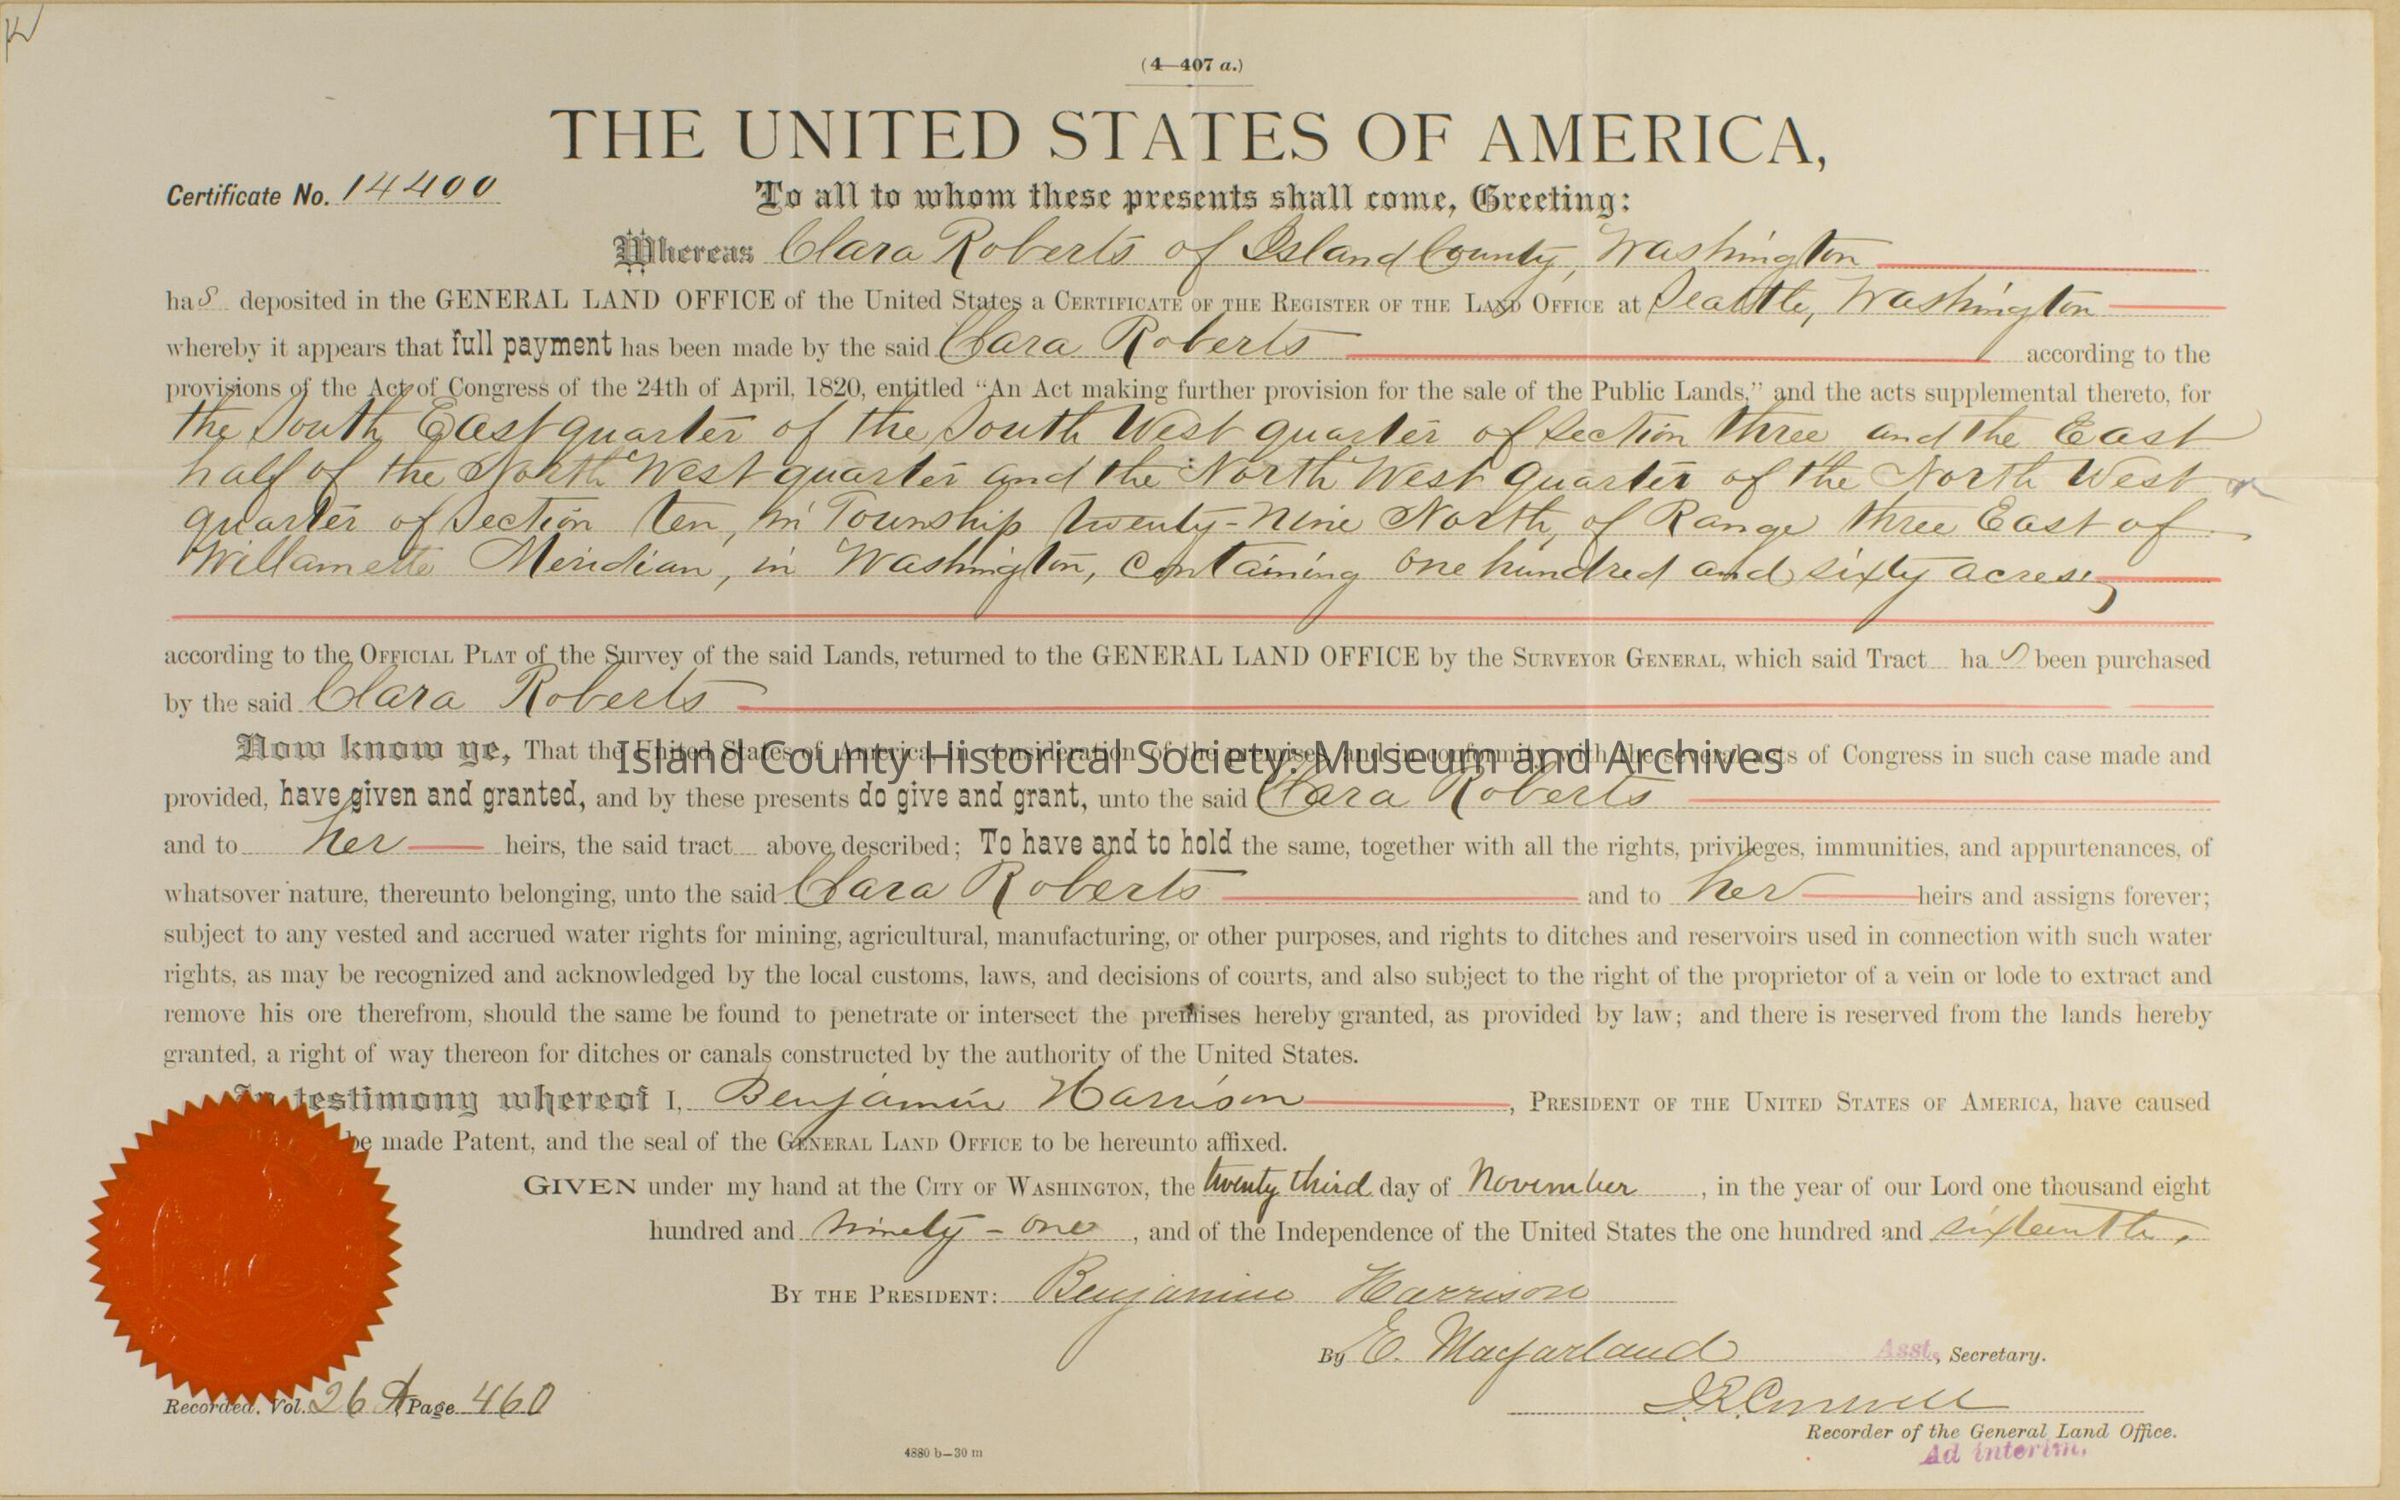 (4—407 a.)
THE UNITED STATES OF AMERICA,
Certificate No. 14400
To all to whom these presents shall come, Greeting:
Whereas Clara Roberts of Island County, Washington
has deposited in the GENERAL LAND OFFICE of the United States a CERTIFICATE OF THE REGISTER OF THE LAND OFFICE at Seattle, Washington
whereby it appears that full payment has been made by the said Clara Roberts according to the
provisions of the Act of Congress of the 24th of April, 1820, entitled “An Act making further provision for the sale of the Public Lands,” and the acts supplemental thereto, for
the South East quarter of the South West quarter of Section three and the East
half of the North West quarter and the North West quarter of the North West
quarter of Section ten, in Township twenty-nine North, of Range three East of
Willamette Meridian, in Washington, containing one hundred and sixty acres,
according to the OFFICIAL PLAT of the Survey of the said Lands, returned to the GENERAL LAND OFFICE by the SURVEYOR GENERAL, which said Tract has been purchased
by the said Clara Roberts
Now know ye, That the United States of America, in consideration of the premises, and in conformity with the several acts of Congress in such case made and
Island County Historical Society: Museum and Archives
provided, have given and granted, and by these presents do give and grant, unto the said Clara Roberts
and to her heirs, the said tract above described; To have and to hold the same, together with all the rights, privileges, immunities, and appurtenances, of
whatsover nature, thereunto belonging, unto the said Clara Roberts and to her heirs and assigns forever;
subject to any vested and accrued water rights for mining, agricultural, manufacturing, or other purposes, and rights to ditches and reservoirs used in connection with such water
rights, as may be recognized and acknowledged by the local customs, laws, and decisions of courts, and also subject to the right of the proprietor of a vein or lode to extract and
remove his ore therefrom, should the same be found to penetrate or intersect the premises hereby granted, as provided by law; and there is reserved from the lands hereby
granted, a right of way thereon for ditches or canals constructed by the authority of the United States.
In testimony whereof I, Benjamin Harrison, PRESIDENT OF THE UNITED STATES OF AMERICA, have caused
be made Patent, and the seal of the GENERAL LAND OFFICE to be hereunto affixed.
GIVEN under my hand at the CITY OF WASHINGTON, the twenty third day of November, in the year of our Lord one thousand eight
hundred and ninety-one, and of the Independence of the United States the one hundred and sixteenth.
BY THE PRESIDENT: Benjamin Harrison
By E. Macfarland Asst., Secretary.
Recorded, Vol. 26 A Page 460
J.R. Conwell
Recorder of the General Land Office.
Ad interim.
4880 b—30 m